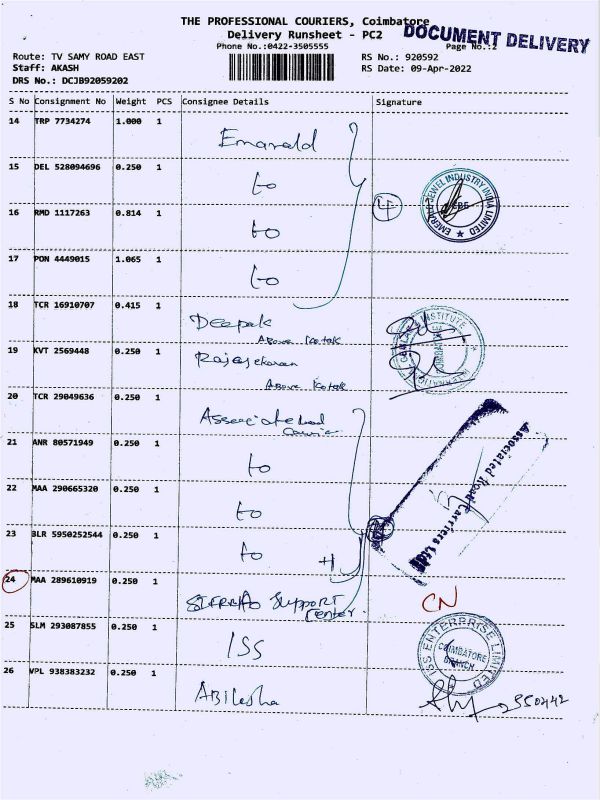 THE PROFESSIONAL COURIERS, Coimbatore
Delivery Runsheet - PC2
DOCUMENT DELIVERY
Phone No.:0422-3505555
Page No.:2
Route: TV SAMY ROAD EAST
RS No.: 920592
Staff: AKASH
RS Date: 09-Apr-2022
DRS No.: DCJB92059202
S No Consignment No Weight PCS Consignee Details Signature
14 TRP 7734274 1.000 1 Emerald
15 DEL 528094696 0.250 1 to
EMERALD JEWEL INDUSTRY INDIA LIMITED
16 RMD 1117263 0.814 1 to
4
17 PON 4449015 1.065 1 to
18 TCR 16910707 0.415 1 Deepak
Above Kotak
INSTITUTE
COIMBATORE
19 KVT 2569448 0.250 1 Rajasekaran
Above Kotak
20 TCR 29049636 0.250 1 Associated
21 ANR 80571949 0.250 1 to
Associated Road Carriers Ltd
22 MAA 290665320 0.250 1 to
23 BLR 5950252544 0.250 1 to
24 MAA 289610919 0.250 1 Support
Center.
CN
25 SLM 293087855 0.250 1 ISS
ISS ENTERPRISE LIMITED
COIMBATORE
BRANCH
26 VPL 938383232 0.250 1 Abilesha